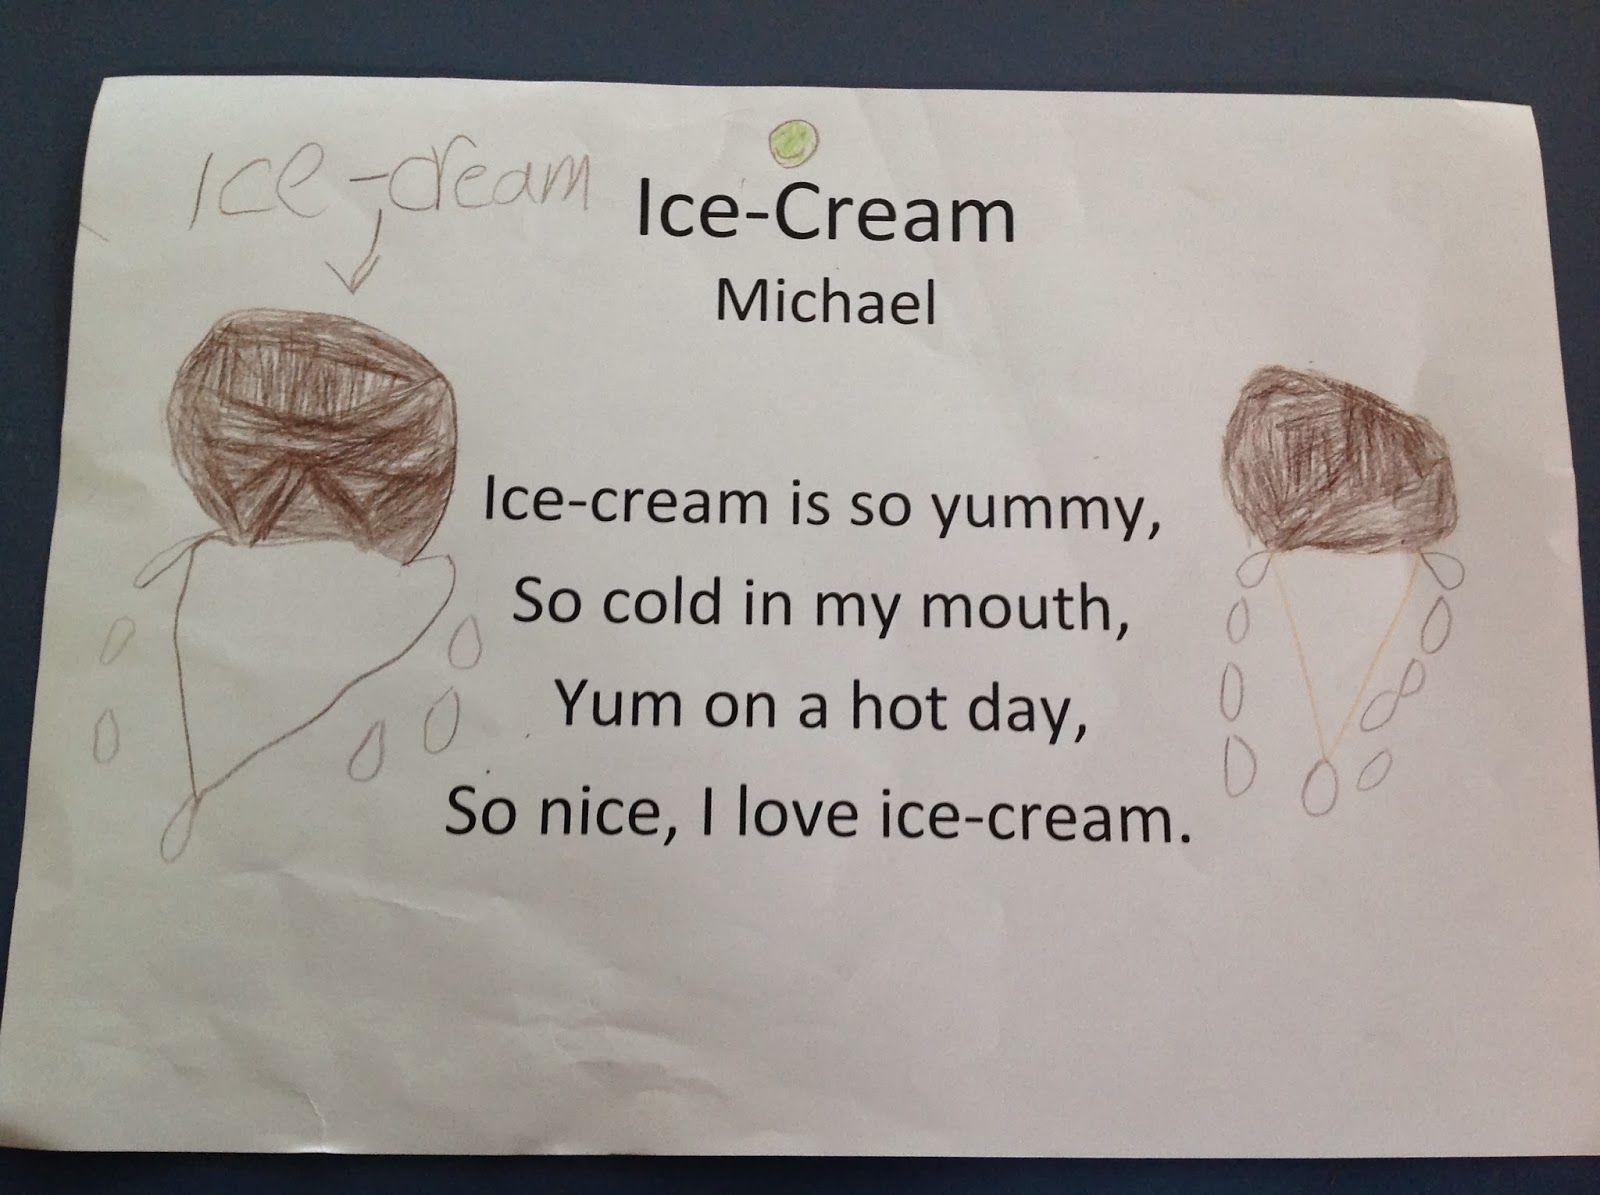 Ice-cream
Ice-Cream
Michael
Ice-cream is so yummy,
So cold in my mouth,
Yum on a hot day,
So nice, I love ice-cream.